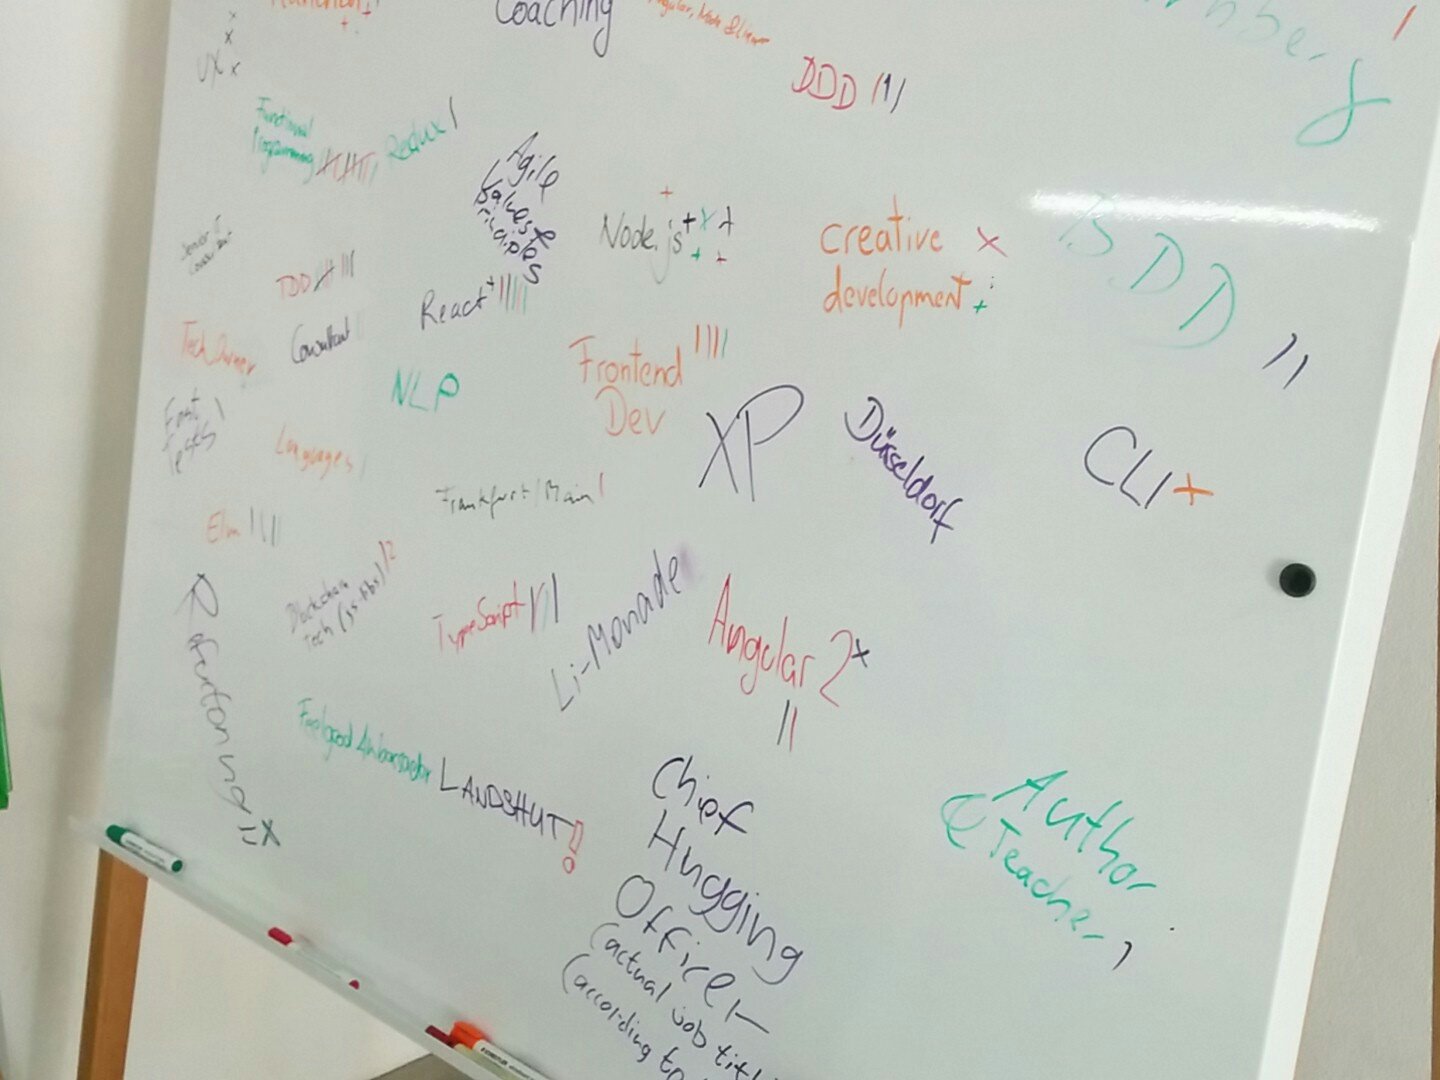 Coaching
UX
DDD
Functional
Programming
Redux
Agile
Values &
Principles
Node.js
creative
development
BDD
TDD
React
Tech Owner
Consultant
NLP
Frontend
Dev
XP
Düsseldorf
CLI
Fast
Tests
Languages
Frankfurt/Main
Elm
Blockchain
Tech
TypeScript
Li-Monade
Angular 2
Feelgood Ambassador
LANDSHUT!
Chief
Hugging
Officer
(actual job
(according to
Author
& Teacher